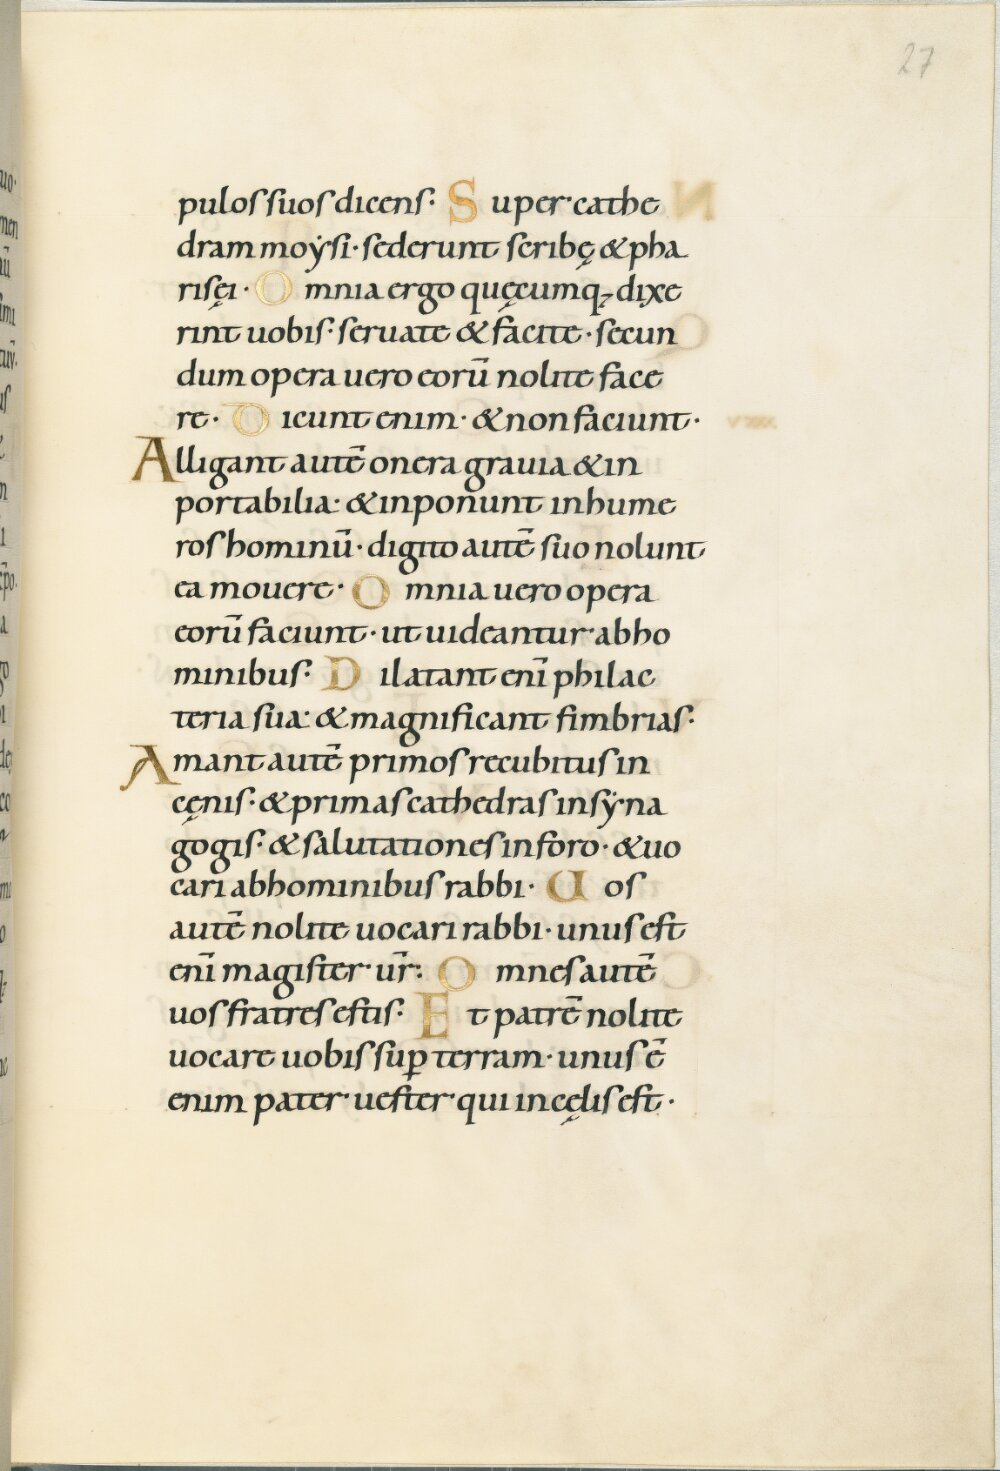 27
pulos suos dicens· Super cathe
dram moẏsi· sederunt scribę & pha
risęi· Omnia ergo quęcumq; dixe
rint uobis· seruate & facite· secun
dum opera uero eorū nolite face
re· Dicunt enim· & non faciunt·
Alligant autē onera gravia & in
portabilia· & inponunt in hume
ros hominū· digito autē suo nolunt
ea mouere· Omnia uero opera
eorū faciunt· ut uideantur abho
minibus· Dilatant enī philac
teria sua· & magnificant fimbrias·
Amant autē primos recubitus in
cęnis· & primas cathedras in sẏna
gogis· & salutationes in foro· & uo
cari abhominibus rabbi· Uos
autē nolite uocari rabbi· unus est
enī magister ur̄· Omnes autē
uos fratres estis· Et patrē nolite
uocare uobis suꝑ terram· unus ē
enim pater uester qui in cęlis est·